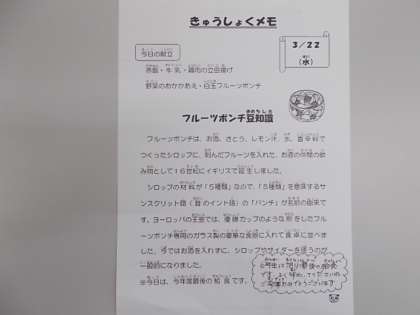 きゅうしょくメモ
3/22
(水)
今日の献立
赤飯・牛乳・鶏肉の立田揚げ
野菜のおかかあえ・白玉フルーツポンチ
フルーツポンチ豆知識
フルーツポンチは、お酒、さとう、レモン汁、水、香辛料で
つくったシロップに、刻んだフルーツを入れた、お酒の仲間の飲
み物として16世紀にイギリスで誕生しました。
シロップの材料が「5種類」なので、「5種類」を意味するサン
スクリット語(昔のインド語)の「パンチ」が名前の由来で
す。ヨーロッパの王室では、優勝カップのような形をしたフル
ーツポンチ専用のガラス製の豪華な食器に入れて食卓に並べま
した。今ではお酒を入れずに、シロップやサイダーを使うのが
一般的になりました。
※今日は、今年度最後の給食です。